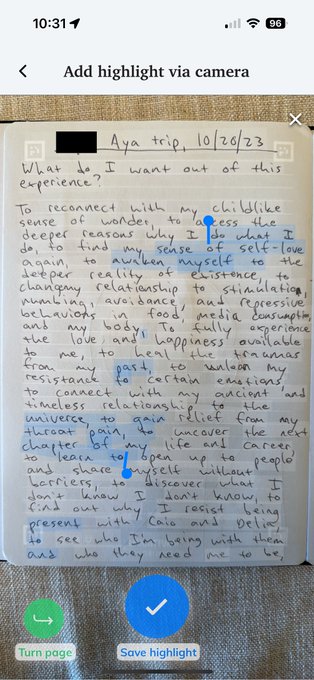 10:31
96
Add highlight via camera
Aya trip, 10/20/23
What do I want out of this
experience?
To reconnect with my childlike
sense of wonder, to access the
deeper reasons why I do what I
do, to find my sense of self-love
again, to awaken myself to the
deeper reality of existence, to
changing relationship to stimulation,
numbing, avoidance, and repressive
behaviors in food, media consumption,
and my body. To fully experience
the love and happiness available
to me, to heal the traumas
from my past, to unlearn my
resistance to certain emotions,
to connect with my ancient and
timeless relationship to the
universe, to gain relief from my
throat pain, to uncover the next
chapter of my life and career
to learn to open up to people
and share myself without
barriers, to discover what I
don't know I don't know, to
find out why I resist being
present with Caio and Delia,
to see who I'm being with them
and who they need me to be,
Turn page
Save highlight